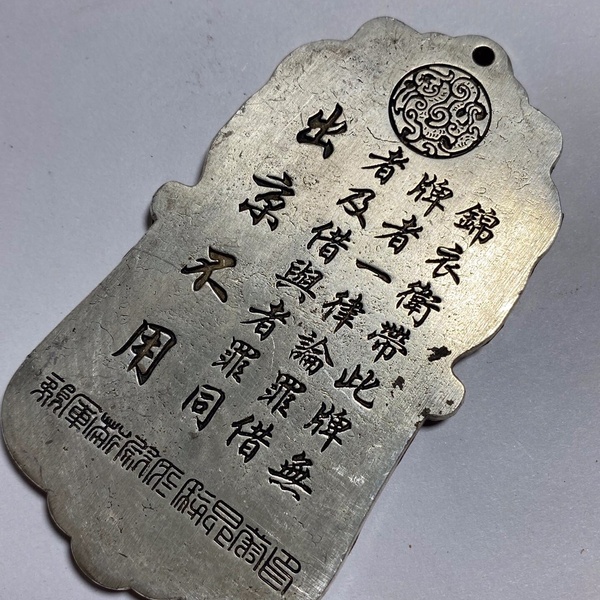 錦衣衛帶此牌無
牌者一律論罪借
者及借與者罪同
出京不用